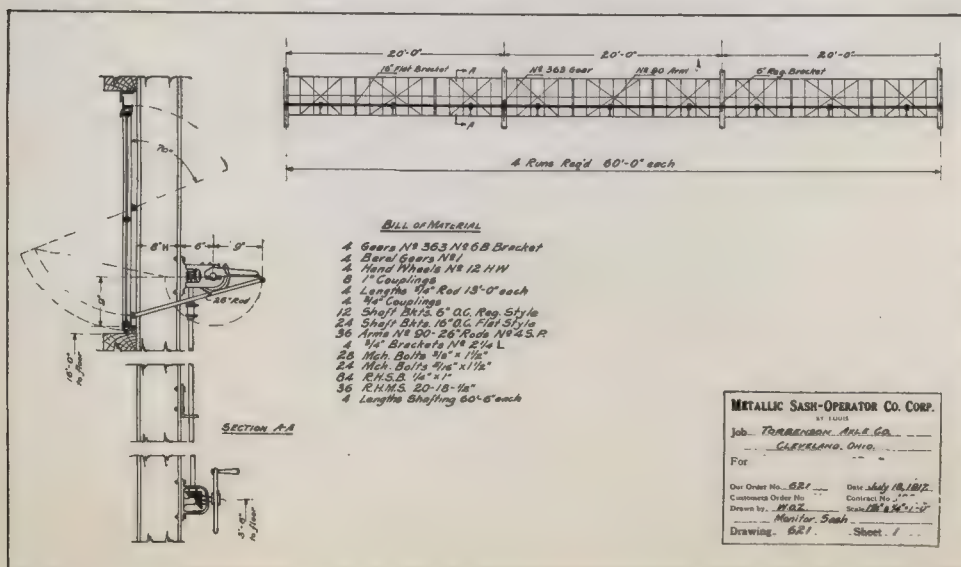 20'-0" 20'-0" 20'-0"
16" Flat Bracket A Nº 363 Gear Nº 90 Arm 6" Reg. Bracket
A
4 Runs Req'd 60'-0" each
70°
8" H 6" 9"
26" Rod
16'-0"
to floor
SECTION A-A
3'-6"
to floor
BILL OF MATERIAL
4 Gears Nº 363 Nº 6B Bracket
4 Bevel Gears Nº 1
4 Hand Wheels Nº 12 HW
8 1" Couplings
4 Lengths 3/4" Rod 13'-0" each
4 3/4" Couplings
12 Shaft Bkts. 6" O.C. Reg. Style
24 Shaft Bkts. 16" O.C. Flat Style
36 Arms Nº 90-26" Rods Nº 4 S.P.
4 3/4" Brackets Nº 2 1/4 L
28 Mch. Bolts 3/8" x 1 1/2"
24 Mch. Bolts 5/16" x 1 1/2"
84 R.H.S.B. 1/4" x 1"
36 R.H.M.S. 20-18-1/2"
4 Lengths Shafting 60'-6" each
METALLIC SASH-OPERATOR CO. CORP.
ST LOUIS
Job TORBENSON AXLE CO.
CLEVELAND, OHIO.
For " "
Our Order No. 621 Date July 18, 1917
Customers Order No Contract No
Drawn by W.O.Z. Scale
Monitor Sash
Drawing 621 Sheet 1